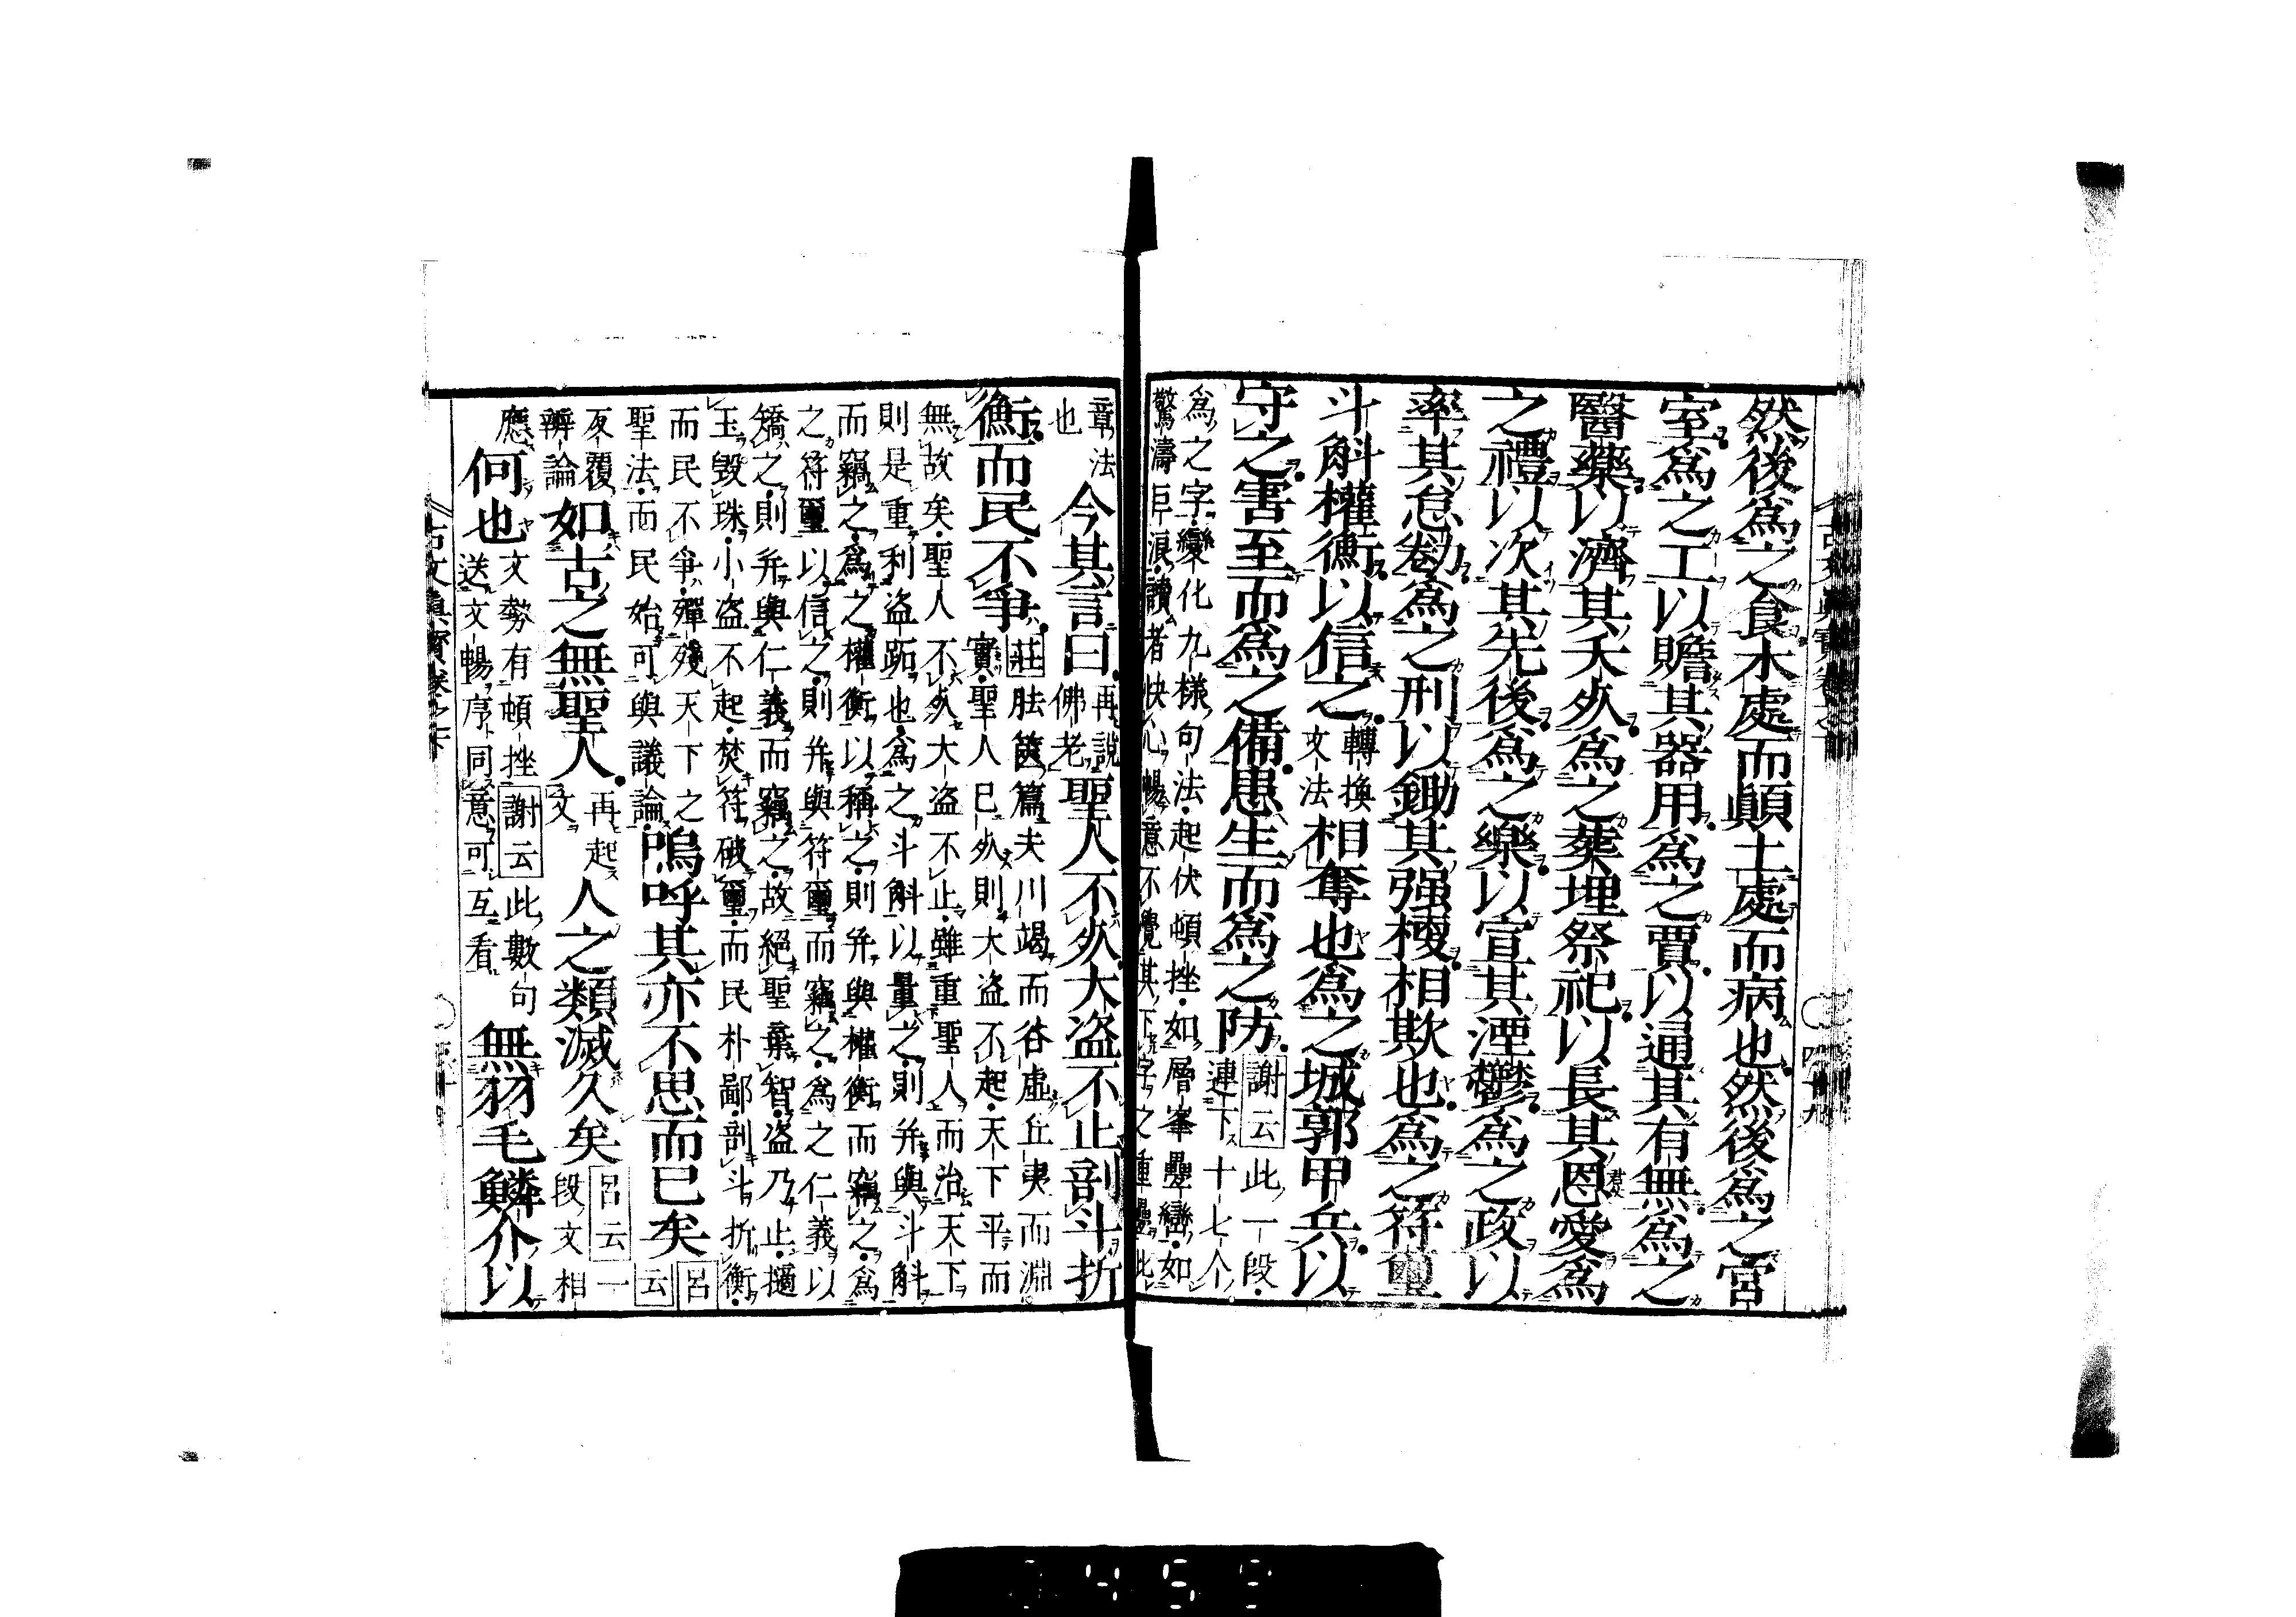 然後爲之食木處而顚土處而病也然後爲之宮
室爲之工以贍其器用爲之賈以通其有無爲之
醫藥以濟其夭死爲之葬埋祭祀以長其恩愛爲
之禮以次其先後爲之樂以宣其湮鬱爲之政以
率其怠勌爲之刑以鋤其强梗相欺也爲之符璽
斗斛權衡以信之
轉換
文法
相奪也爲之城郭甲兵以
守之害至而爲之備患生而爲之防
謝云此一段
連下十七个
爲之字變化九樣句法起伏頓挫如層峯疊巒如
驚濤巨浪讀者快心暢意不覺其下字之重疊此
章法
也
今其言曰
再說
佛老
聖人不死大盗不止剖斗折
衡而民不爭
莊胠篋篇夫川竭而谷虛丘夷而淵
實聖人已死則大盗不起天下平而
無故矣聖人不死大盗不止雖重聖人而治天下
則是重利盗跖也爲之斗斛以量之則并與斗斛
而竊之爲之權衡以稱之則并與權衡而竊之爲
之符璽以信之則并與符璽而竊之爲之仁義以
矯之則并與仁義而竊之故絕聖棄智盗乃止擿
玉毀珠小盗不起焚符破璽而民朴鄙剖斗折衡
而民不爭殫殘天下之
聖法而民始可與議論
嗚呼其亦不思而已矣
呂
云
反覆
辨論
如古之無聖人
再起
文
人之類滅久矣
呂云一
段文相
應
何也
文勢有頓挫謝云此數句
送文暢序同意可互看
無羽毛鱗介以